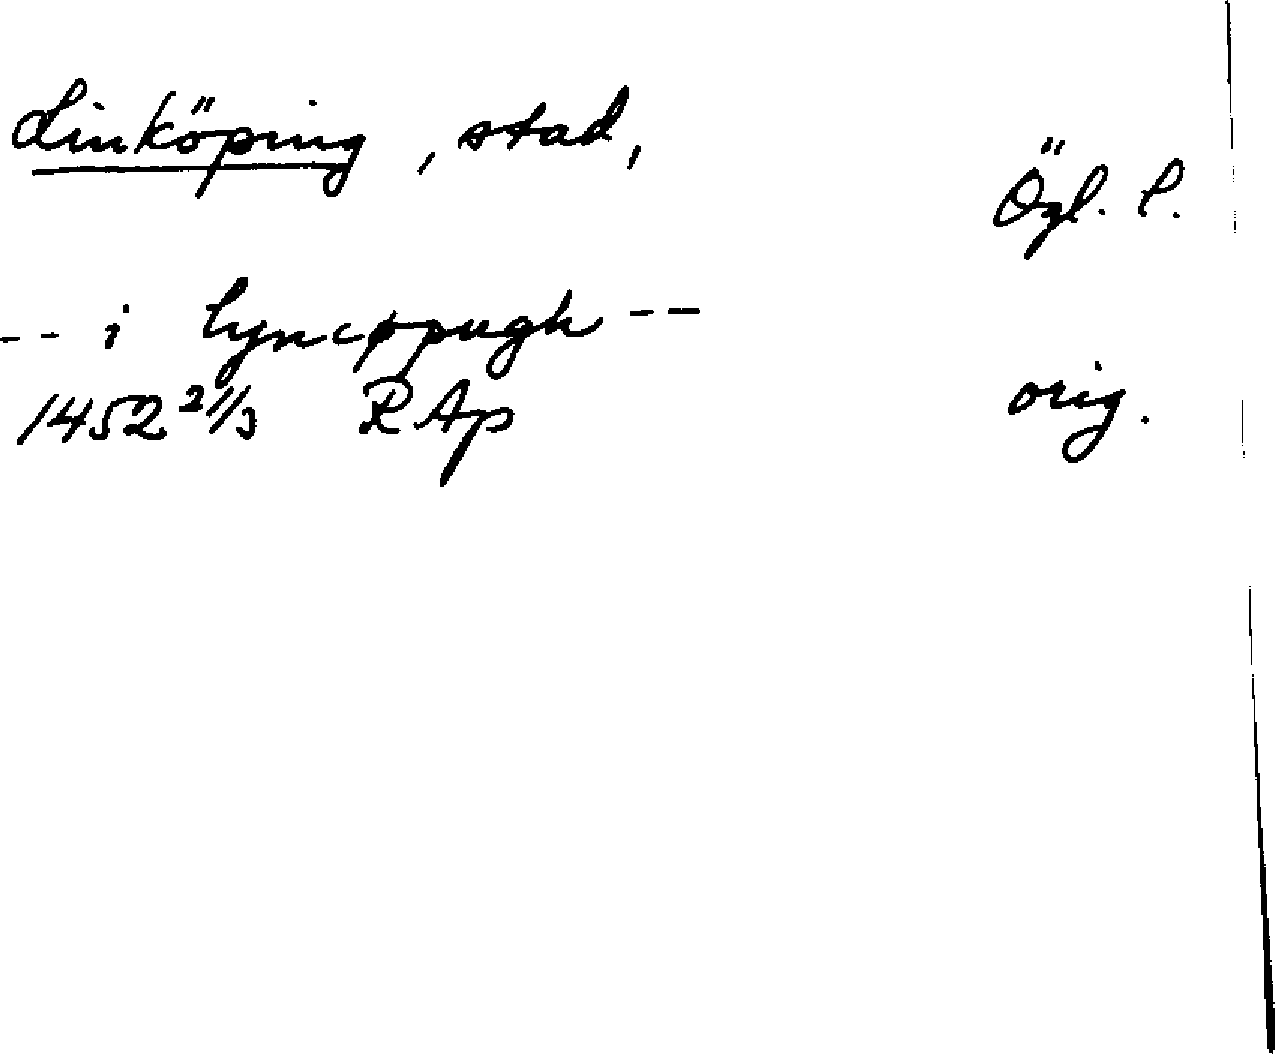 Linköping, stad,
Ögl. l.
-- i lyncøpugh --
1452 21/3 RAp
orig.